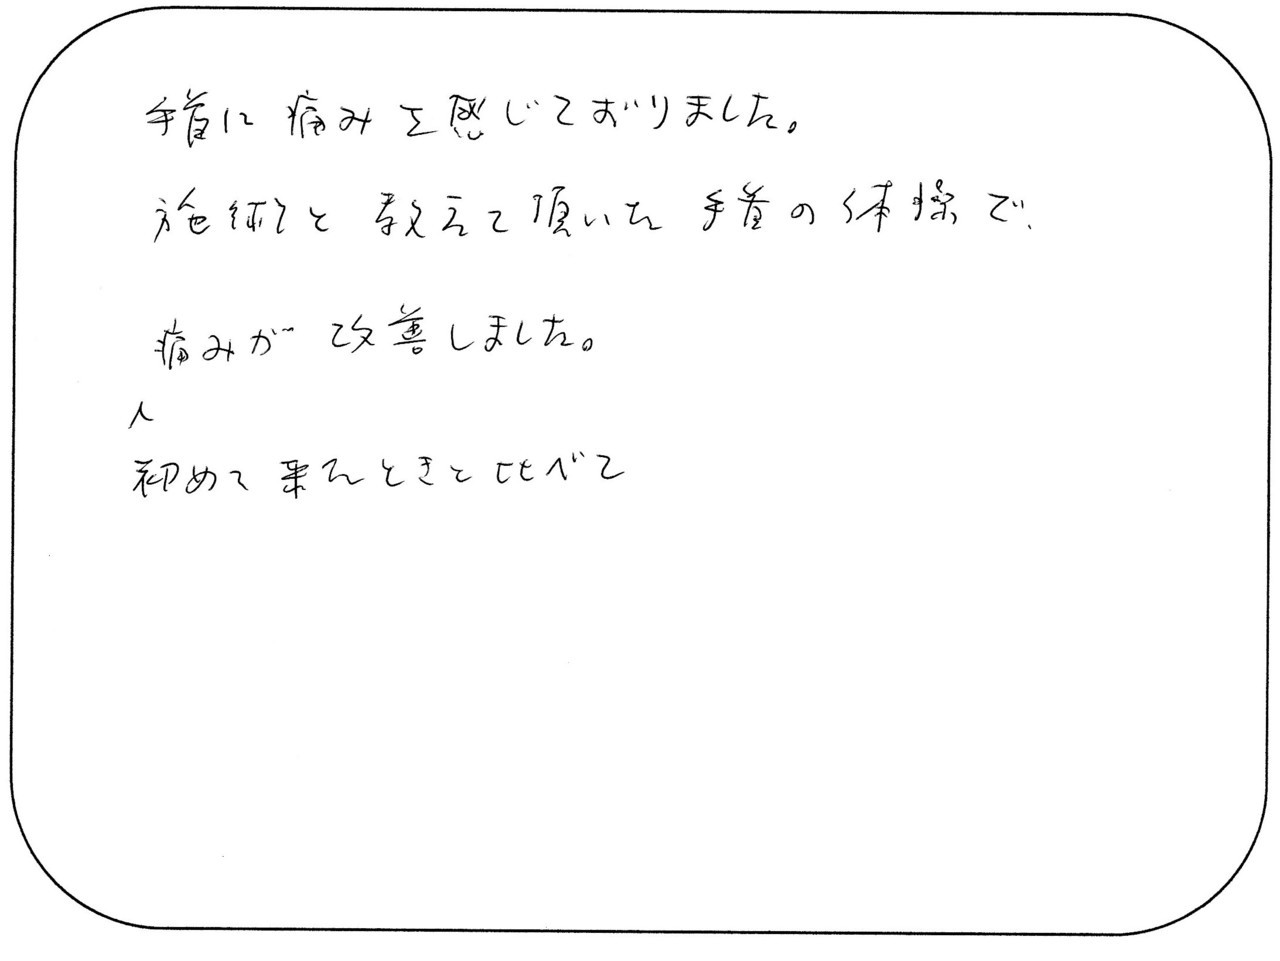 手首に痛みを感じておりました。
施術と教えて頂いた手首の体操で、
痛みが改善しました。
初めて来たときと比べて